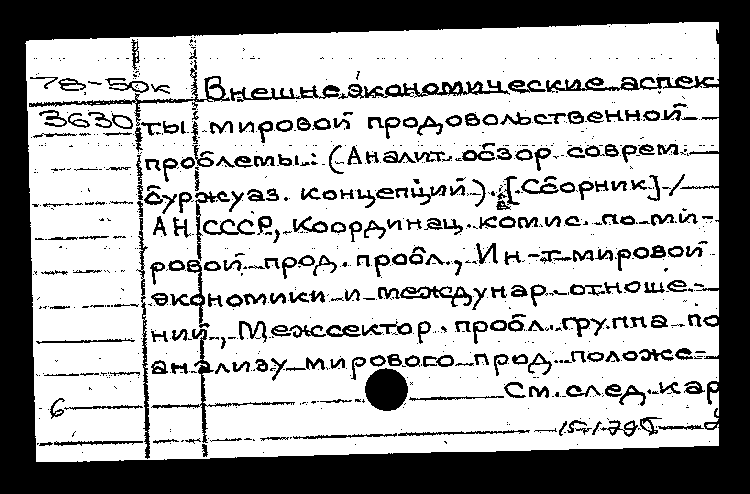 78-50к Внешнеэкономические аспек
3630 ты мировой продовольственной
проблемы: (Аналит. обзор соврем.
буржуаз. концепций). [Сборник] /
АН СССР, Координац. комис. по ми-
ровой прод. пробл., Ин-т мировой
экономики и междунар. отноше-
ний, Межсектор. пробл. группа по
анализу мирового прод. положе-
См. след. кар
6